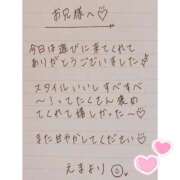 お兄様へ♡
今日は遊びに来てくれて
ありがとうございました
スタイルいいしすべすべ
〜！ってたくさん褒め
てくれて嬉しかった〜♡
また甘やかしてください♡
えまより